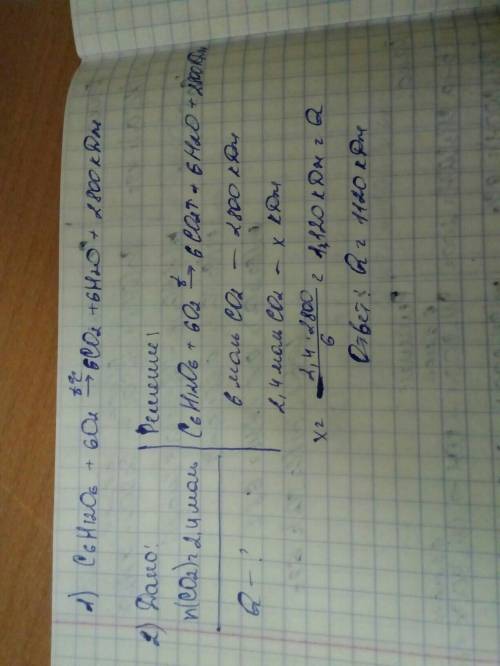 1) C6H12O6 + 6O2 t°→ 6CO2 + 6H2O + 2800 кДж
2) Дано: Решение:
n(CO2) = 2,4 моль C6H12O6 + 6O2 t→ 6CO2↑ + 6H2O + 2800 кДж
Q - ? 6 моль CO2 — 2800 кДж
2,4 моль CO2 — x кДж
x = 2,4 · 2800 / 6 = 1120 кДж = Q
Ответ: Q = 1120 кДж